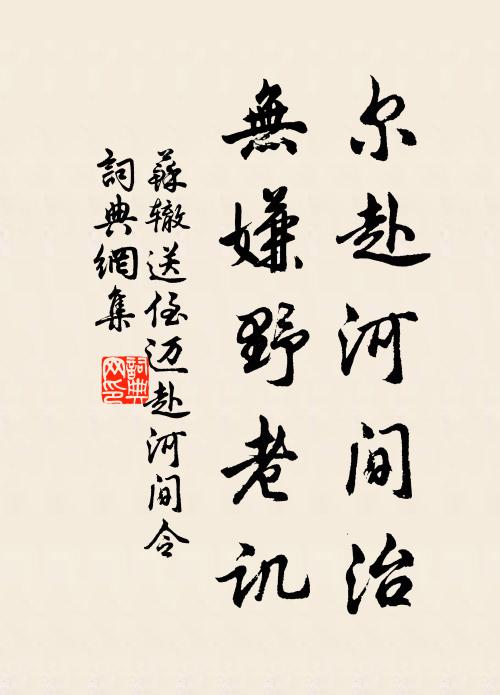 尔赴河间治
無嫌野老讥
蘇辙送侄迈赴河间令
詞典網集
詞典
网印